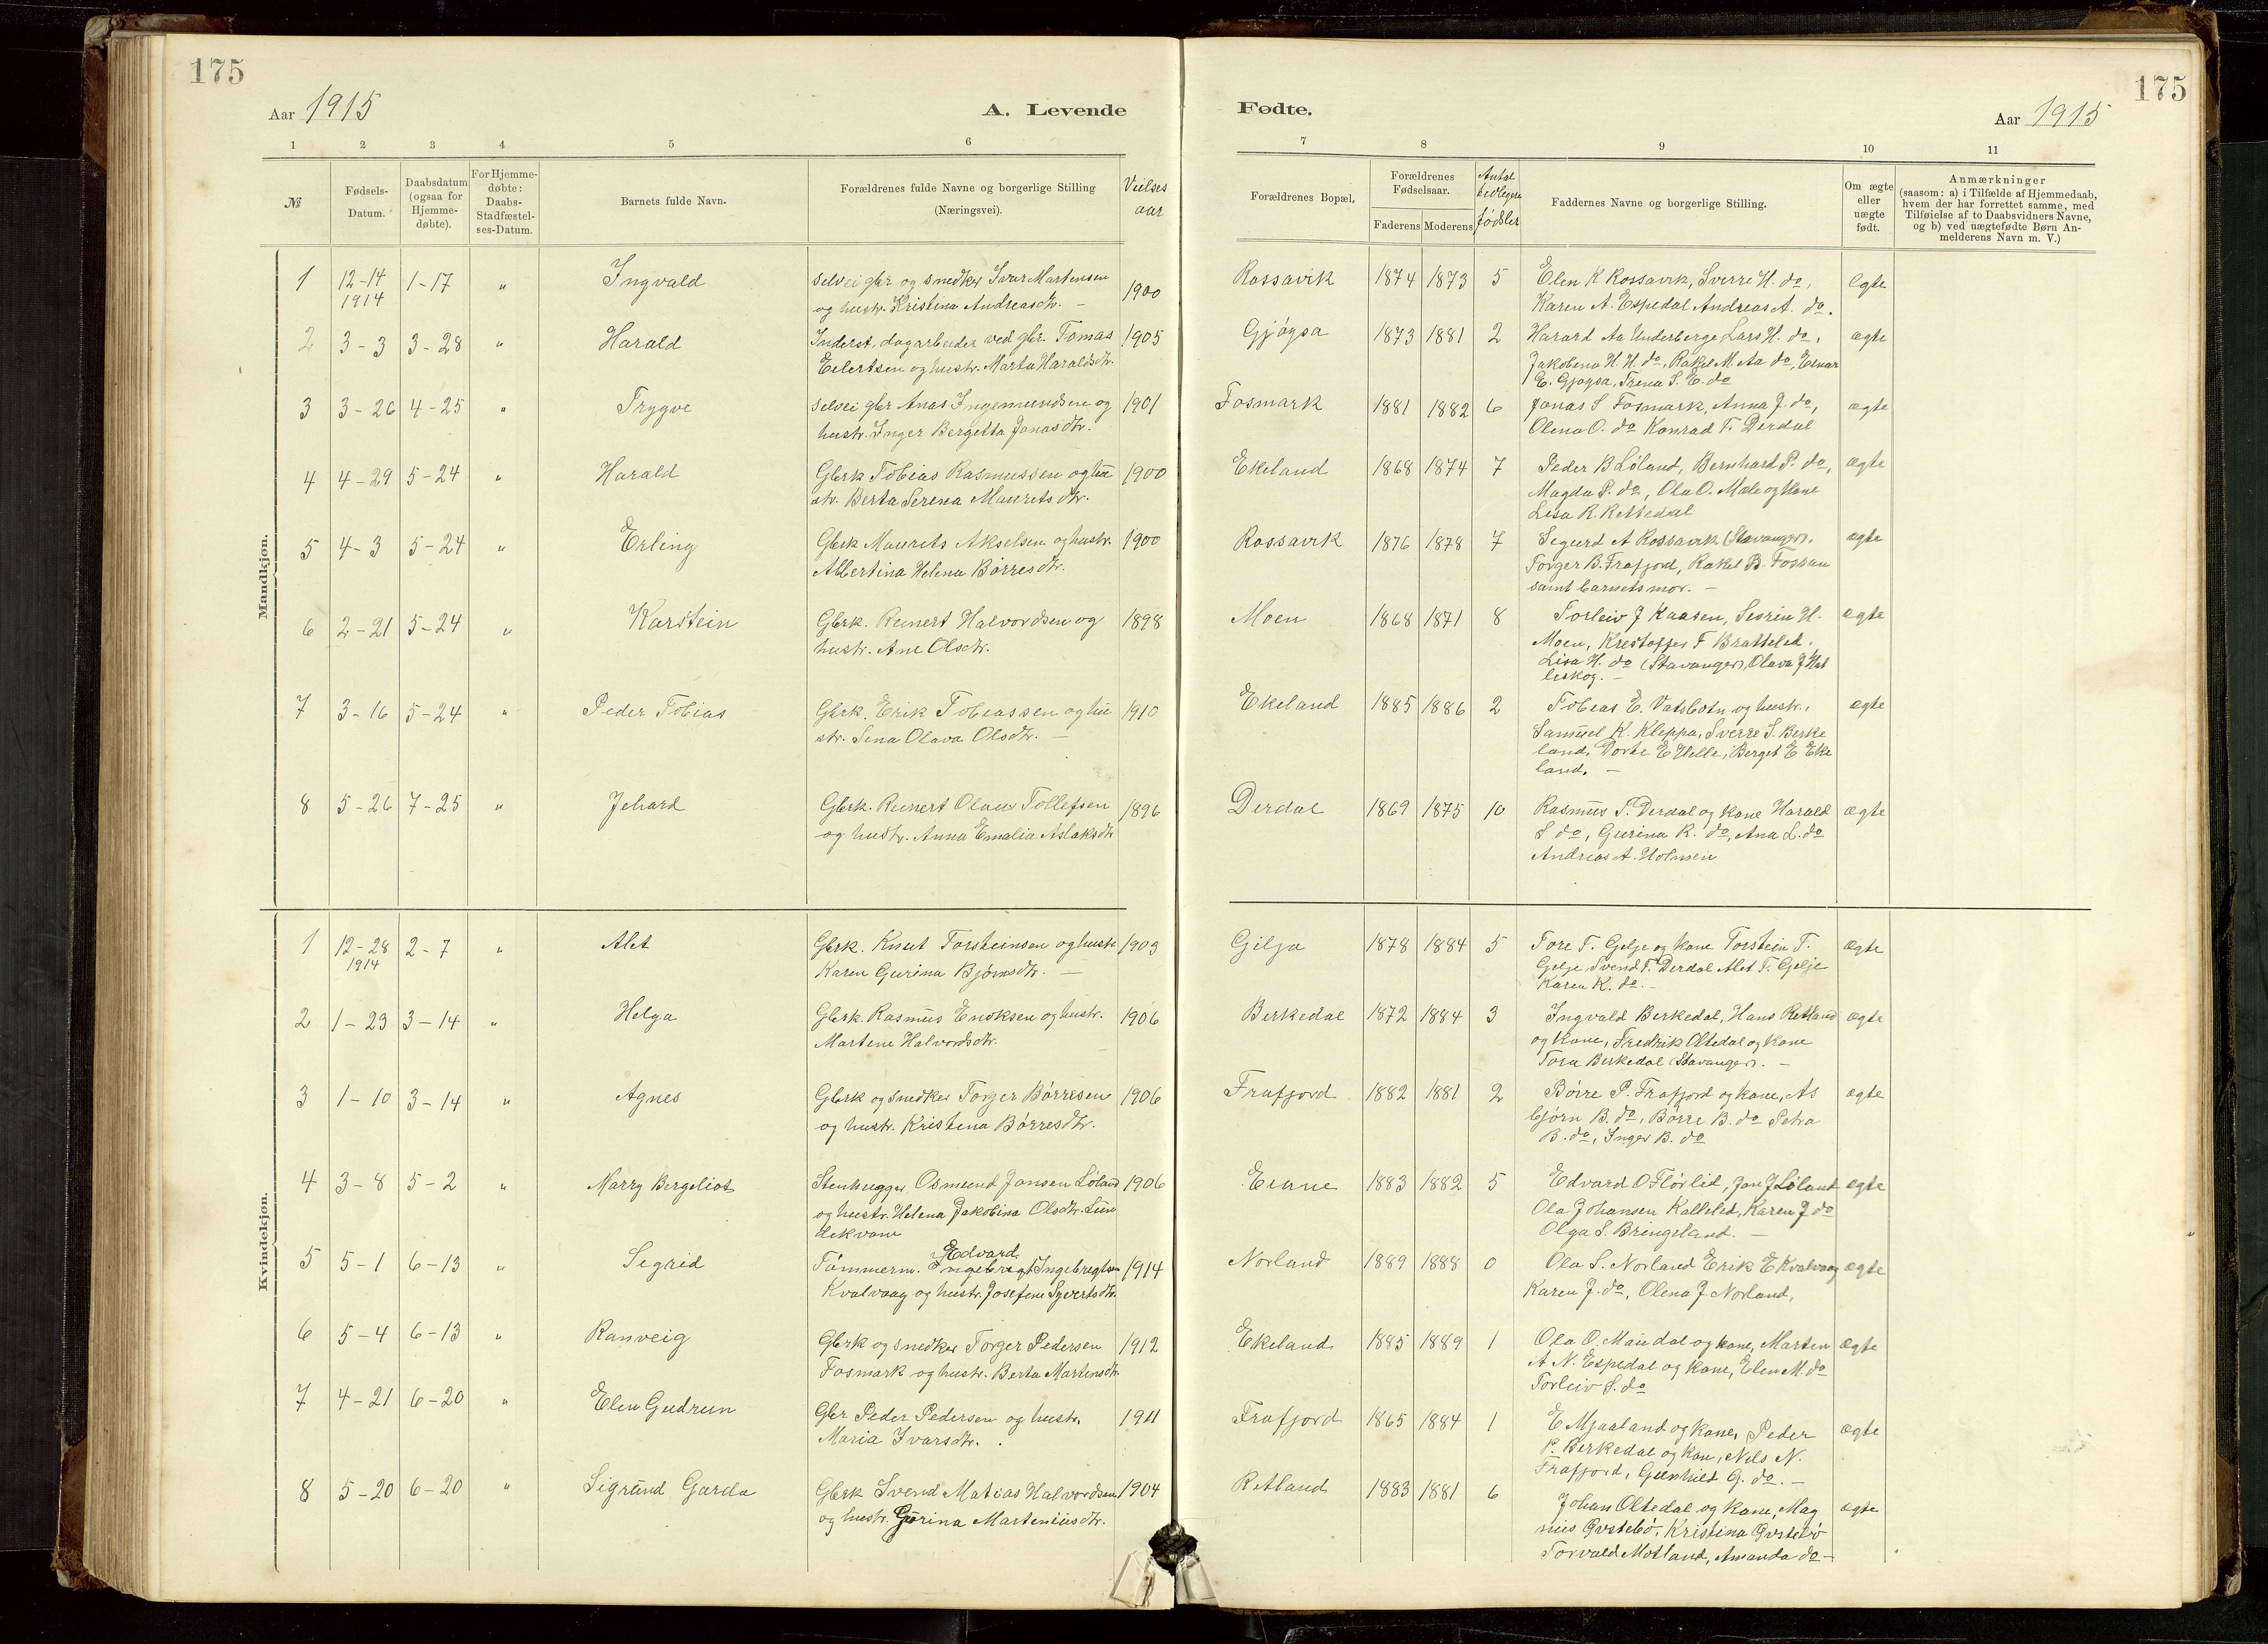 175
175
Aar 1915
A. Levende
Fødte.
Aar 1915
1 2 3 4 5 6
7 8 9 10 11
№
Fødsels-
Datum.
Daabsdatum
(ogsaa for
Hjemme-
døbte).
For Hjemme-
døbte:
Daabs-
Stadfæstel-
ses-Datum.
Barnets fulde Navn.
Forældrenes fulde Navne og borgerlige Stilling
(Næringsvei).
Vielses
aar
Forældrenes Bopæl.
Forældrenes
Fødselsaar.
Faderens Moderens
Antal
tidligere
fødsler
Faddernes Navne og borgerlige Stilling.
Om ægte
eller
uægte
født.
Anmærkninger
(saasom: a) i Tilfælde af Hjemmedaab,
hvem der har forrettet samme, med
Tilføielse af to Daabsvidners Navne,
og b) ved uægtefødte Børn An-
melderens Navn m. V.)
Mandkjøn.
1 12-14 1-17 " Ingvald selvei gbr og snedker Ivar Martensen
1914 og hustr. Kristina Andreasdtr. - 1900
Rossavik 1874 1873 5 Elen K Rossavik, Sverre H. do, ægte
Karen A. Espedal Andreas A. do.
2 3-3 3-28 " Harald Inderst, dagarbeider ved gbr. Tomas 1905
Eilertsen og hustr. Marta Haraldsdtr.
Gjøysa 1873 1881 2 Harard Aa Underberge Lars H. do, ægte
Jakobina H. H. do, Rakel M. Aa do, Einar
E. Gjøysa, Trena S. E. do
3 3-26 4-25 " Trygve selvei gbr Anas Ingemundsen og 1901
hustr. Inger Bergetta Jonasdtr.
Fosmark 1881 1882 6 Jonas S Fosmark, Anna J. do, ægte
Olena O. do Konrad T. Dirdal
4 4-29 5-24 " Harald Gbrk Tobias Rasmussen og hu 1900
str. Berta Serena Mauretsdtr.
Ekeland 1868 1874 7 Peder B Løland, Bernhard P. do, ægte
Magda P. do, Ola O. Mæle og kone
Lisa R. Rettedal
5 4-3 5-24 " Erling Gbrk Maurits Akselsen og hustr. 1900
Albertina Helena Børresdtr.
Rossavik 1876 1878 7 Sigurd A Rossavik (Stavanger), ægte
Torger B. Frafjord, Rakel B. Fossan
samt barnets mor. -
6 2-21 5-24 " Karstein Gbrk. Reinert Halvordsen og 1898
hustr. Ane Olsdtr.
Moen 1868 1871 8 Torleiv J Kaasen, Sesrin H. ægte
Moen, Krestoffer T Brattelid,
Lisa H. do (Stavanger), Olava J Hat
leskog. -
7 3-16 5-24 " Peder Tobias Gbrk. Erik Tobiassen og hu 1910
str. Sina Olava Olsdtr. -
Ekeland 1885 1886 2 Tobias E. Vatsbotn og hustr., ægte
Samuel K. Kleppa, Sverre S. Berke
land, Dorte E Helle, Berget E Eke
land. -
8 5-26 7-25 " Jehard Gbrk. Reinert Olaus Tollefsen 1896
og hustr. Anna Emalia Aslaksdtr
Dirdal 1869 1875 10 Rasmus T. Dirdal og kone Harald ægte
S do, Gurina R. do, Ana L. do
Andreas A. Holmen
Kvindekjøn.
1 12-28 2-7 " Alet Gbrk. Knut Torsteinsen og hustr 1903
1914 Karen Gurina Bjørnsdtr. -
Gilja 1878 1884 5 Tore T. Gilje og kone Torstein T. ægte
Gilje, Svend T. Dirdal Alet T. Gilje
Karen K. do. -
2 1-23 3-14 " Helga Gbrk. Rasmus Enoksen og hustr. 1906
Martene Halvordsdtr.
Berkedal 1872 1884 3 Ingvald Berkedal, Hans Retland ægte
og kone, Fredrik Oltedal og kone
Tora Berkedal (Stavanger). -
3 1-10 3-14 " Agnes Gbrk og snedker Torger Børresen 1906
og hustr. Kristina Børresdtr.
Frafjord 1882 1881 2 Børre P. Frafjord og kone, As ægte
bjørn B. do, Børre B. do Petra
B. do, Inger B. do
4 3-8 5-2 " Marry Bergeliot Stenhugger Osmund Jansen Løland 1906
og hustr. Helena Jakobina Olsdtr. Lun
dekvam
Eiane 1883 1882 5 Edvard O Flørlid, Jan J Løland ægte
Ola Johansen Kallelid, Karen J do
Olga S. Bringeland. -
5 5-1 6-13 " Segrid Tømmerm. Edvard Ingebregt Ingebregtsen 1914
Kvalvaag og hustr. Josefine Syvertsdtr.
Norland 1889 1888 0 Ola S. Norland Erik E Kvalvaag ægte
Karen J. do, Olena J. Norland,
6 5-4 6-13 " Ranveig Gbrk og snedker Torger Pedersen 1912
Fosmark og hustr. Berta Martinsdtr.
Ekeland 1885 1889 1 Ola O. Maudal og kone, Marten ægte
A N. Espedal og kone, Elen M. do
Torleiv S. do
7 4-21 6-20 " Elen Gudrun Gbr Peder Pedersen og hustr. 1911
Maria Ivarsdtr.
Frafjord 1865 1884 1 E Mjaaland og kone, Peder ægte
P. Berkedal og kone, Nils N.
Frafjord, Gunhild G. do. -
8 5-20 6-20 " Sigrund Garda Gbrk Svend Matias Halvordsen 1904
og hustr. Gurina Marteniusdtr.
Retland 1883 1881 6 Johan Oltedal og kone, Mag ægte
nus Øvstebø, Kristina Øvstebø
Torvald Motland, Amanda do -